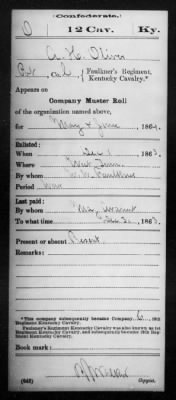 Confederate.
O 12 Cav. Ky.
A. H. Oliver
Faulkner's Regiment,
Kentucky Cavalry.*
Appears on
Company Muster Roll
of the organization named above,
for May & June, 1864.
Enlisted:
When Dec 1, 1863.
Where West Tenn.
By whom W. W. Faulkner
Period War
Last paid:
By whom
To what time 186
Present or absent Present
Remarks:
*This company subsequently became Company 12th
Regiment Kentucky Cavalry.
Faulkner's Regiment Kentucky Cavalry was also known as 1st
Regiment Kentucky Cavalry, and subsequently became 12th Regiment
Kentucky Cavalry.
Book mark:
(642)
Copyist.